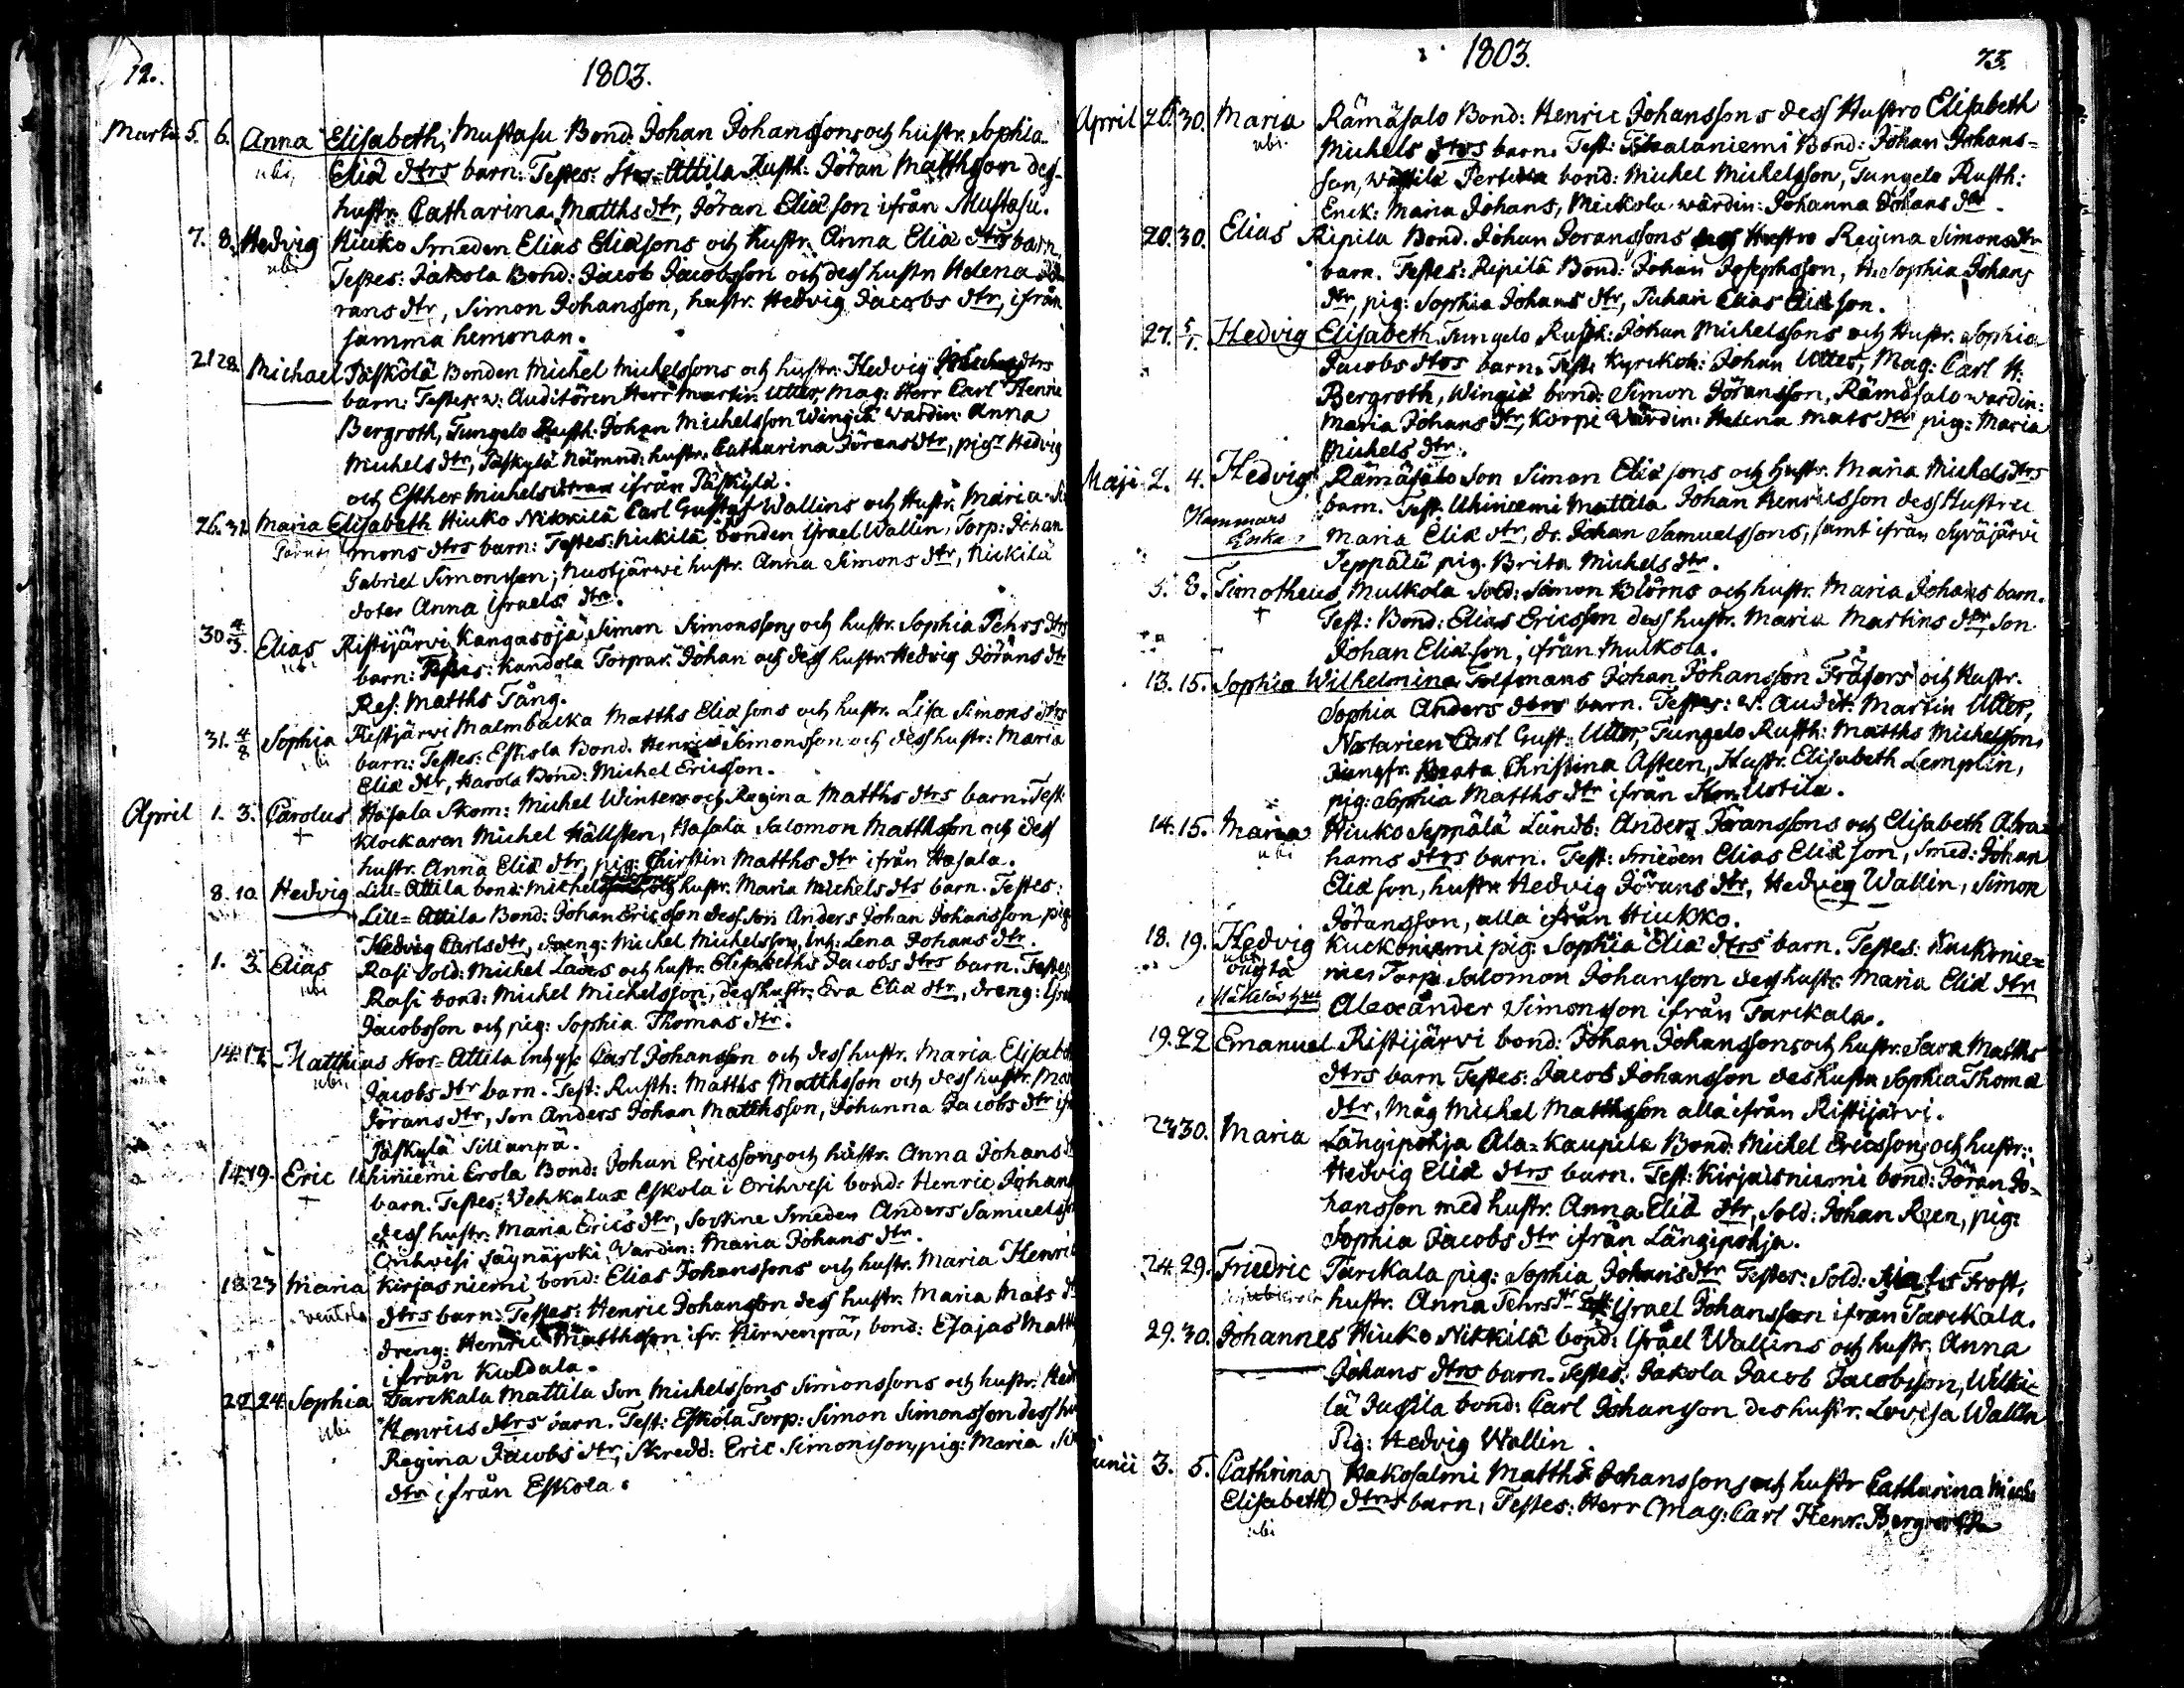 72.
1803.
Martii 5. 6. Anna Elisabeth, Mustasu Bond: Johan Johanssons och hustr. Sophia
ubi Eliæ dtrs barn. Testes: Stor-Attila Rusth: Jöran Matthsson des
hustr. Catharina Matths dtr, Jöran Eliæson ifrån Mustasu.
7. 8. Hedvig Hiuko Smeden Elias Eliæsons och hustr. Anna Eliæ dtrs barn
ubi Testes: Jakola Bond: Jacob Jacobsson och dess hustr Helena Jö
rans dtr, Simon Johansson, hustr. Hedvig Jacobs dtr, ifrån
samma hemman.
21 28. Michael Päskölä Bonden Michel Michelssons och hustr: Hedvig dtrs
barn: Testes: v: Auditören Herr Martin Utter, Mag: Herr Carl Henric
Bergroth, Tungelo Rusth: Johan Michelsson Wingiä wärdin: Anna
Michels dtr, Päskylä Nämnd: hustr. Catharina Jörans dtr, pigr Hedvig
och Esther Michelsdtrar ifrån Päskylä.
26. 31. Maria Elisabeth Hiuko Nikkilä Carl Gustaf Wallins och Hustr. Maria Si
mons dtrs barn: Testes: Nikkilä bonden Israel Wallin, Torp: Johan
Gabriel Simonsson; Nustjärwi hustr. Anna Simons dtr, Nickilä
doter Anna Israels dtr.
30 4/3. Elias Ristijärvi Kangasoja Simon Simonssons och hustr. Sophia Pehrs dtrs
ubi barn: Testes: Kandola Torpar: Johan och dess hustr Hedvig Jörans dtr
Res: Matths Tång.
31. 4/8 Sophia Ristjärvi Malmbacka Matths Eliæsons och hustr. Lisa Simons dtrs
ubi barn: Testes: Eskola Bond. Henric Simonsson och dess hustr: Maria
Eliæ dtr, Harola Bond: Michel Ericsson.
April 1. 3. Carolus Hasala Skom: Michel Winters och Regina Matths dtrs barn. Test
+ Klockaren Michel Hällsten, Hasala Salomon Matthsson och dess
hustr. Anna Eliæ dtr, pig: Chirstin Matths dtr ifrån Hasala.
8. 10 Hedvig Lill-Attila bond: Michel hustr. Maria Michels dts barn. Testes:
Lill-Attila Bond: Johan Ericsson dess son Anders Johan Johansson pig
Hedvig Carlsdtr, Dreng: Michel Michelsson, Inh: Lena Johans dtr.
1. 3. Elias Rasi Sold: Michel Laxes och hustr. Elisabeths Jacobs dtrs barn. Testes
ubi Rasi bond: Michel Michelsson, dess hustr. Eva Eliæ dtr, dreng: Isra
Jacobsson och pig: Sophia Thomas dtr.
14. 17. Matthias Stor-Attila Inhys: Carl Johansson och dess hustr. Maria Elisab
ubi Jacobs dtr barn. Test: Rusth: Matths Matthsson och dess hustr. Mar
Jörans dtr, Son Anders Johan Matthsson, Johanna Jacobs dtr ifr
Päskylä Sillanpä.
14. 19. Eric Uhiniemi Erola Bond: Johan Ericssons och hustr. Anna Johans
+ barn. Testes: Vehkalax Eskola i Orihvesi bond: Henric Johans
dess hustr: Maria Erics dtr, Smeden Anders Samuelsso
Orihvesi Säynäjoki Wardin: Maria Johans dtr.
18. 23 Maria Kirjasniemi bond: Elias Johanssons och hustr. Maria Henric
dtrs barn: Testes: Henric Johansson dess hustr. Maria Mats d
dreng: Henric Matthsson ifr. Hirwenpä, bond: Esajas Matth
ifrån Kuldala.
22 24. Sophia Tarckala Mattila Son Michelssons Simonssons och hustr. Hed
ubi Henrics dtrs barn. Test: Eskola Torp: Simon Simonsson dess hu
Regina Jacobs dtr, Skredd: Eric Simonsson, pig: Maria Si
dtr ifrån Eskola.
1803. 73.
April 26. 30. Maria Rämäsalo Bond: Henric Johanssons dess Hustro Elisabeth
ubi Michels dtrs barn. Test: Bond: Johan Johans=
son, bond: Michel Michelsson, Tungelo Rusth:
Enck: Maria Johans, Mickola wärdin: Johanna Johans dtr.
20. 30. Elias Ripila Bond. Johan Joranssons Hustro Regina Simons dtr
barn. Testes: Ripilä Bond: Johan Josephsson, H: Sophia Johans
dtr, pig: Sophia Johans dtr, Elias Eliæson.
27. 5/1. Hedvig Elisabeth Tungelo Rusth: Johan Michelssons och Hustr. Sophia
Jacobs dtrs barn. Test: Kyrckoh: Johan Utter, Mag: Carl H.
Bergroth, Wingiä bond: Simon Jöransson, Rämäsalo wardin:
Maria Johans dtr, Korpi Wärdin: Helena Mats dtr pig: Maria
Michels dtr.
Maji 2. 4. Hedvig Rämäsalo Son Simon Eliæsons och hustr. Maria Michels dtrs
barn. Test. Uhiniemi Mattila Johan Henricsson dess Hustru
Hammars Enka Maria Eliæ dtr, Dr. Johan Samuelssons, samt ifrån Syväjärvi
Seppälä pig. Brita Michels dtr.
5. 8. Timotheus Mulkola Sold: Simon Blöms och hustr. Maria Johans barn.
+ Test: Bond: Elias Ericsson dess hustr. Maria Martins dtr, Son
Johan Eliæson, ifrån Mulkola.
13. 15. Sophia Wilhelmina Tolfmans Johan Johansson Fräsers och Hustr.
Sophia Anders dtrs barn. Testes: V. Audit: Martin Utter,
Notarien Carl Gust: Utter, Tungelo Rusth: Matths Michelsson,
Jungfr. Beata Christina Asteen, Hustr. Elisabeth Lemplin,
pig: Sophia Matths dtr ifrån Uotila.
14. 15. Maria Hiuko Seppälä Landb: Anders Joranssons och Elisabeth Abra=
ubi hams dtrs barn. Test: Smeden Elias Eliæson, Smed: Johan
Eliæson, hustr. Hedvig Jörans dtr, Hedvig Wallin, Simon
Jöransson, alla ifrån Hiukko.
18. 19. Hedvig Kuckoniemi pig: Sophia Eliæ dtrs barn. Testes: Kuckonie=
ubi oägta mes Torp: Salomon Johansson dess hustr. Maria Eliæ dtr
Alexander Simonsson ifrån Tarckala.
19. 22 Emanuel Ristijärvi bond: Johan Johanssons och hustr. Sara Matths
dtrs barn Testes: Jacob Johansson des hustr Sophia Thomæ
dtr, Måg Michel Matthsson alla ifrån Ristijärvi.
23 30. Maria Längipohja Ala-Kaupila Bond: Michel Ericssons och hustr:
Hedvig Eliæ dtrs barn. Test: Kirjaisniemi bond: Jöran Jo=
hansson med hustr. Anna Eliæ dtr, Sold: Johan Reen, pig:
Sophia Jacobs dtr ifrån Längipohja.
24. 29. Friedric Tarckala pig: Sophia Johans dtr Testes: Sold: Frost,
hustr. Anna Pehrs dtr Israel Johansson ifrån Tarckala.
29. 30. Johannes Hiuko Nikkilä bond: Israel Wallins och hustr. Anna
Johans dtrs barn. Testes: Jakola Jacob Jacobsson, Wilki=
lä Jussila bond: Carl Johansson des hustr. Lovisa Wallin
Pig: Hedvig Wallin.
Junii 3. 5. Cathrina Hakosalmi Matths Johanssons och hustr Catharina Miche
Elisabeth dtrs barn, Testes: Herr Mag: Carl Henr. Bergroth
ubi